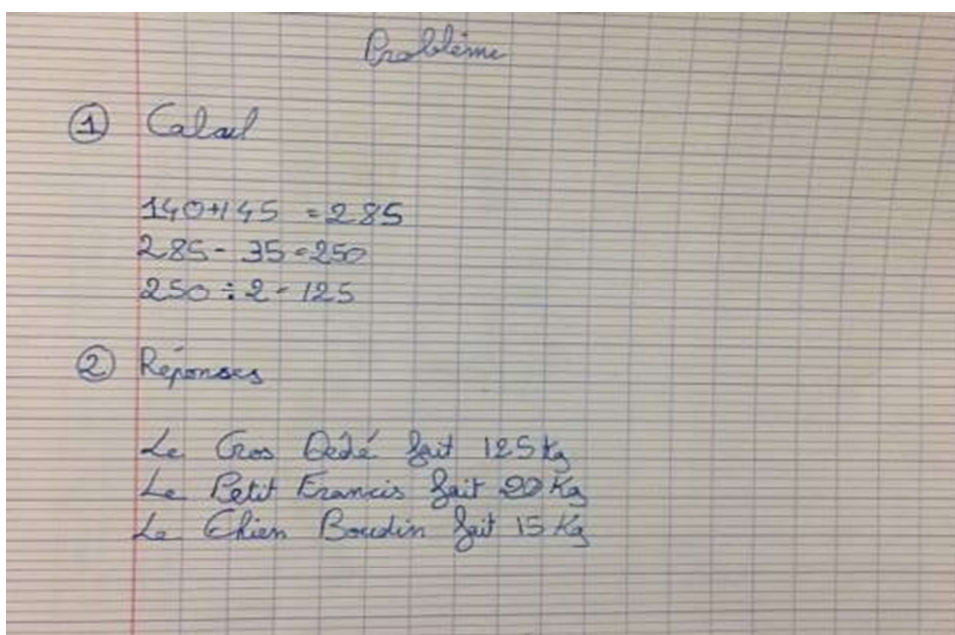 Problème
1 Calcul
140+145 = 285
285 - 35 = 250
250 ÷ 2 = 125
2 Réponses
Le Gros Dédé fait 125 kg
Le Petit Francis fait 20 Kg
Le Chien Boudin fait 15 Kg